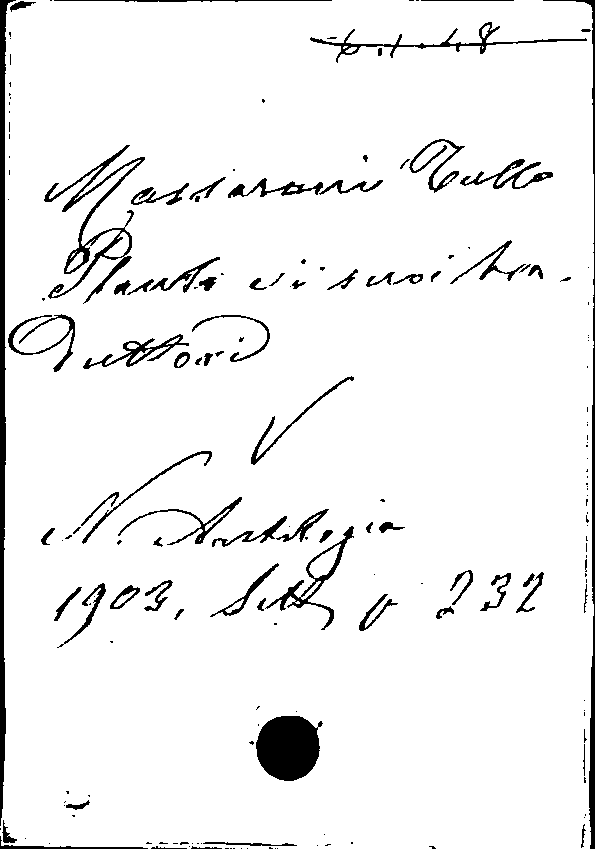 6.1.48
Massarani Tullo
Plauto e i suoi tra-
duttori
V
N. Antologia
1903, Sett p 232